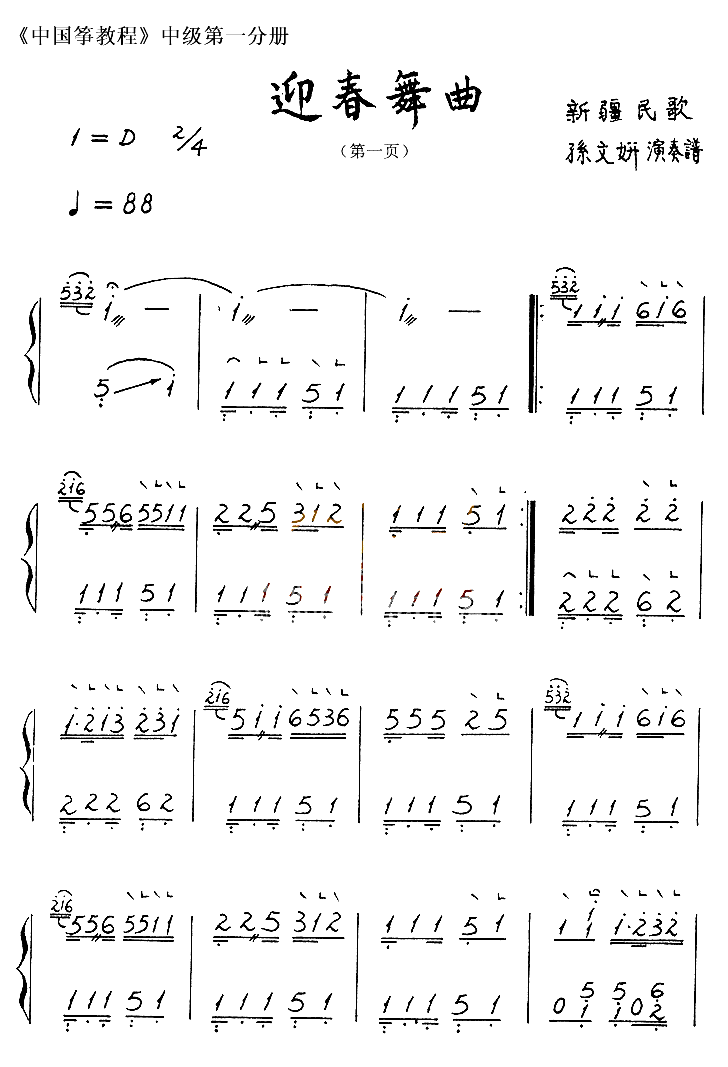 《中国筝教程》中级第一分册
迎春舞曲
(第一页)
新疆民歌
孫文妍演奏譜
1=D 2/4
♩=88
532 1 — 1 — 1 — 532 1 1 1 6 1 6
5 1 1 1 1 5 1 1 1 1 5 1 1 1 1 5 1
216 5 5 6 5 5 1 1 2 2 5 3 1 2 1 1 1 5 1 2 2 2 2 2
1 1 1 5 1 1 1 1 5 1 1 1 1 5 1 2 2 2 6 2
1·2 1 3 2 3 1 216 5 1 1 6 5 3 6 5 5 5 2 5 532 1 1 1 6 1 6
2 2 2 6 2 1 1 1 5 1 1 1 1 5 1 1 1 1 5 1
216 5 5 6 5 5 1 1 2 2 5 3 1 2 1 1 1 5 1 1 1 1 1·2 3 2
1 1 1 5 1 1 1 1 5 1 1 1 1 5 1 0 5 1 5 1 0 6 2